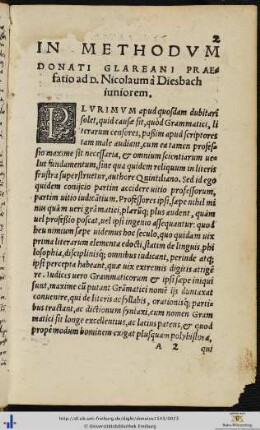 2
IN METHODVM
DONATI GLAREANI PRAE-
fatio ad D. Nicolaum á Diesbach
iuniorem.
PLVRIMVM apud quosdam dubitari
solet, quid causæ sit, quòd Grammatici, li
terarum censores, passim apud scriptores
tam malè audiant, cum ea tamen profes-
sio maximè sit necessaria, & omnium scientiarum ue-
lut fundamentum, sine qua quidem reliquum in literis
frustra superstruetur, authore Quintiliano. Sed id ego
quidem conijcio partim accidere uitio professorum,
partim uitio iudicantium. Professores ipsi, sæpe nihil mi
nus quàm ueri grãmatici, plærũq; plus audent, quàm
uel professio poscat, uel ipsi ingenio assequantur. quod
heu nimium sæpe uidemus hoc seculo, quo quidam uix
prima literarum elementa edocti, statim de linguis, phi
losophia, disciplinisq; omnibus iudicant, perinde atq;
ipsi percepta habeant, quæ uix extremis digitis attigê
re. Iudices uero Grammaticorum & ipsi sæpe iniqui
sunt, maximè cũ putant Grãmatici nomẽ ijs duntaxat
conuenire, qui de literis ac syllabis, orationisq; parti-
bus tractant, ac dictionum syntaxi, cum nomen Gram
matici sit longè excellentius, ac latius patens, & quod
propèmodum hominem exigat plusquam polyhistora,
A 2 qui
http://dl.ub.uni-freiburg.de/diglit/
© Universitätsbibliothek Freiburg